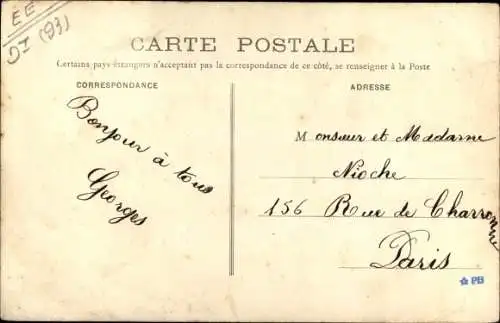 EE
DI (93)
CARTE POSTALE
Certains pays étrangers n'acceptant pas la correspondance de ce côté, se renseigner à la Poste
CORRESPONDANCE
Bonjour à tous
Georges
ADRESSE
Monsieur et Madame
Nioche
156 Rue de Charronne
Paris
PB